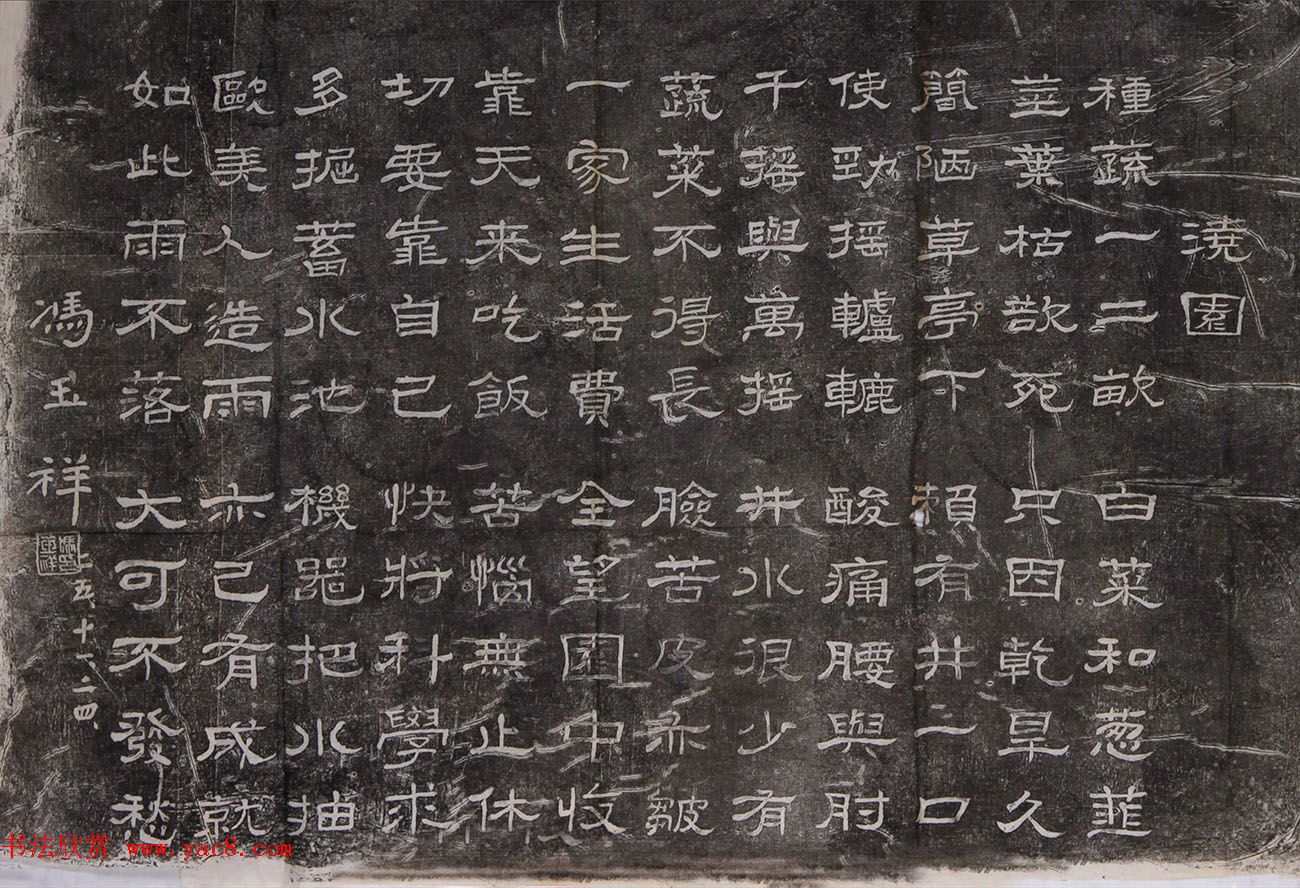 澆園
種蔬一二畝 白菜和葱韮
莖葉枯欲死 只因乾旱久
簡陋草亭下 賴有井一口
使勁摇轤轆 酸痛腰與肘
千摇與萬摇 井水很少有
蔬菜不得長 臉苦皮亦皺
一家生活費 全望園中收
靠天来吃飯 苦惱無止休
切要靠自己 快將科學求
多掘蓄水池 機器把水抽
歐美人造雨 亦已有成就
如此雨不落 大可不發愁
馮玉祥 二五、十一、二四、
书法欣赏 www.yac8.com